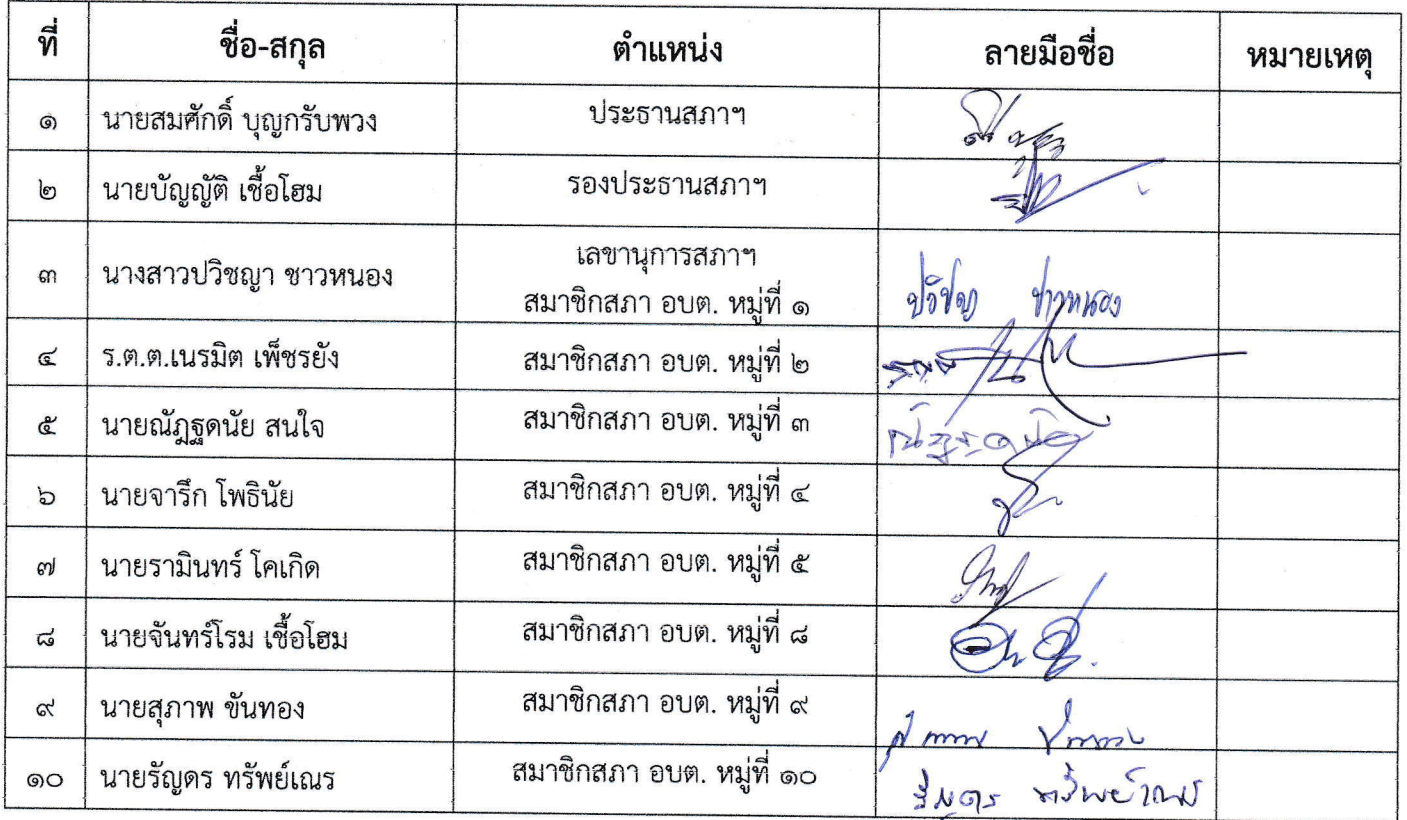 ที่ ชื่อ-สกุล ตำแหน่ง ลายมือชื่อ หมายเหตุ
๑ นายสมศักดิ์ บุญกรับพวง ประธานสภาฯ
๒ นายบัญญัติ เชื้อโฮม รองประธานสภาฯ
๓ นางสาวปวิชญา ชาวหนอง เลขานุการสภาฯ
สมาชิกสภา อบต. หมู่ที่ ๑ ปวิชญา ชาวหนอง
๔ ร.ต.ต.เนรมิต เพ็ชรยัง สมาชิกสภา อบต. หมู่ที่ ๒
๕ นายณัฎฐดนัย สนใจ สมาชิกสภา อบต. หมู่ที่ ๓
๖ นายจารึก โพธินัย สมาชิกสภา อบต. หมู่ที่ ๔
๗ นายรามินทร์ โคเกิด สมาชิกสภา อบต. หมู่ที่ ๕
๘ นายจันทร์โรม เชื้อโฮม สมาชิกสภา อบต. หมู่ที่ ๘
๙ นายสุภาพ ขันทอง สมาชิกสภา อบต. หมู่ที่ ๙
๑๐ นายรัญดร ทรัพย์เณร สมาชิกสภา อบต. หมู่ที่ ๑๐ รัญดร ทรัพย์เณร